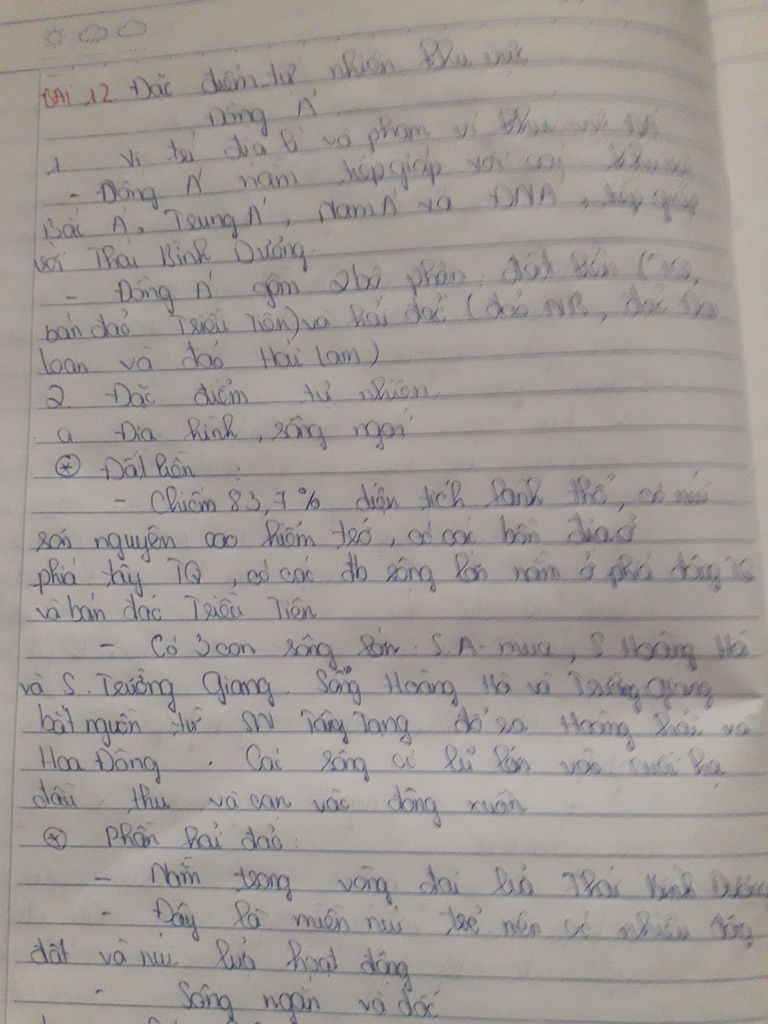 BÀI 12. Đặc điểm tự nhiên khu vực
Đông Á
1 Vị trí địa lí và phạm vi khu vực
- Đông Á nằm tiếp giáp với các
Bắc Á, Trung Á, Nam Á và ĐNA, tiếp giáp
với Thái Bình Dương.
- Đông Á gồm 2 bộ phận đất liền (TQ,
bán đảo Triều Tiên) và hải đảo (đảo NB, đảo Đài
loan và đảo Hải Lam)
2 Đặc điểm tự nhiên.
a Địa hình, sông ngòi
⊛ Đất liền :
- Chiếm 83,7% diện tích lãnh thổ, có núi
sơn nguyên cao hiểm trở, có các bồn địa ở
phía tây TQ, có các đb rộng lớn nằm ở phía đông TQ
và bán đảo Triều Tiên
- Có 3 con sông lớn: S. A-mua, S Hoàng Hà
và S. Trường Giang. Sông Hoàng Hà và Trường Giang
bắt nguồn từ SN Tây Tạng đổ ra Hoàng hải và
Hoa Đông. Các sông có lũ lớn vào cuối hạ
đầu thu và cạn vào đông xuân
⊛ Phần hải đảo:
- Nằm trong vòng đai lửa Thái Bình Dương
- Đây là miền núi trẻ nên có nhiều động
đất và núi lửa hoạt động
- Sông ngắn và dốc